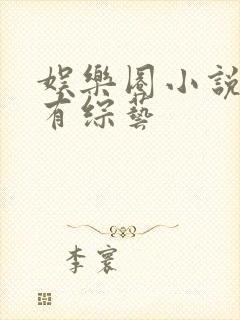 娛樂圈小說
有綜藝
李寰